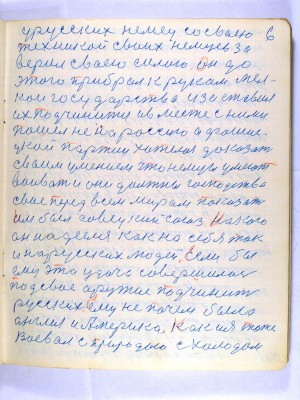 у русских немец со своею 6
техникой своих немцев за
верил своею силою он до
этого прибрал к рукам мел-
кой государства и заставил
их подчинится и вместе с ними
пошел не на россию а фаши-
ской партии хотел доказат
своим умением что немцы умеют
воеват и они должны господство
свое перед всем мирам показат
им был советский союз
он надеял как на себя так
и на русских людей, Если бы
ему это удачь совершилас
под свое оружие подчинит
русских ему не почем была
англия и Америка, Как ия тоже
воевал с природою с холодом